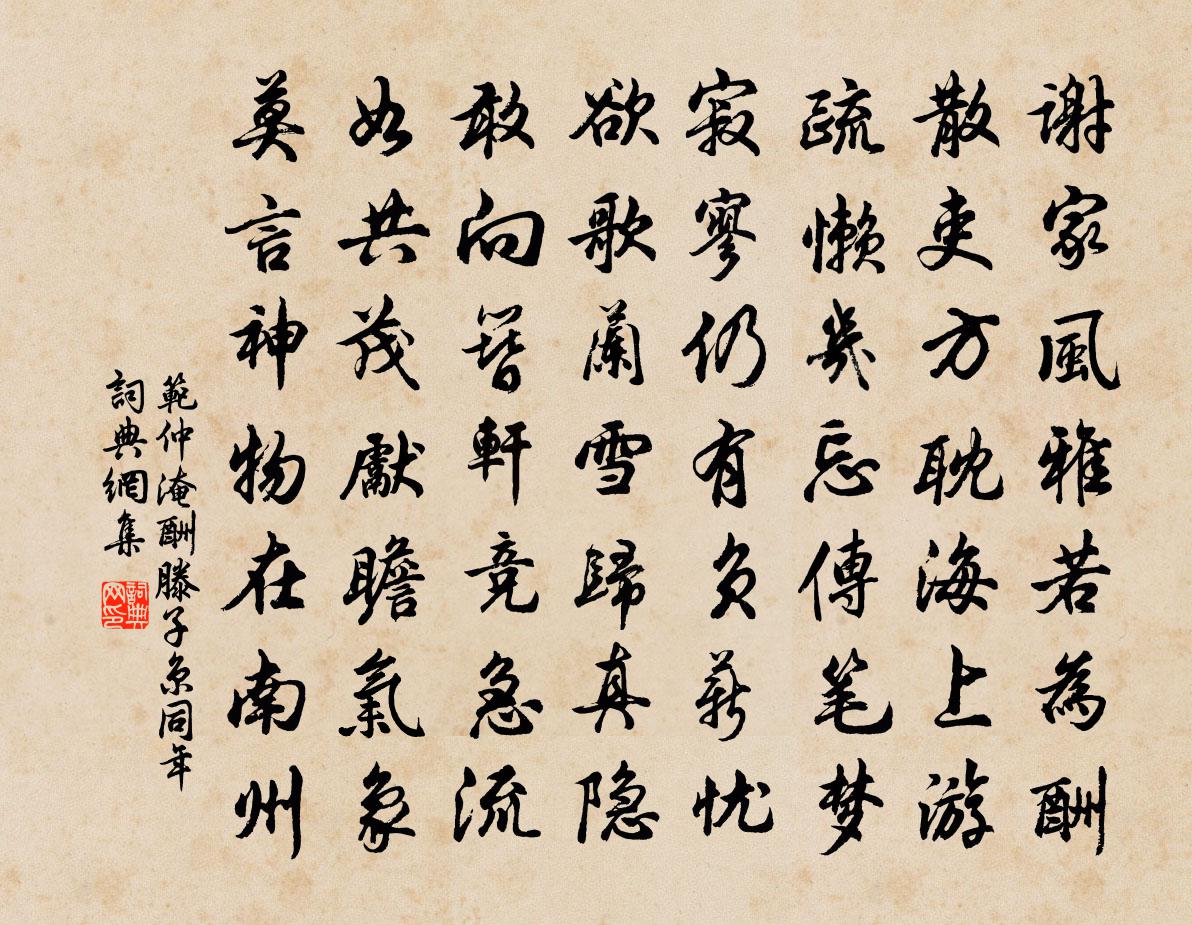 谢家風雅若為酬
散吏方耽海上游
疏懶幾忘傳笔梦
寂寥仍有負薪忧
欲歌蘭雪歸真隐
敢向簪軒競急流
如共茂獻瞻氣象
莫言神物在南州
範仲淹酬滕子京同年
詞典網集
詞典网印